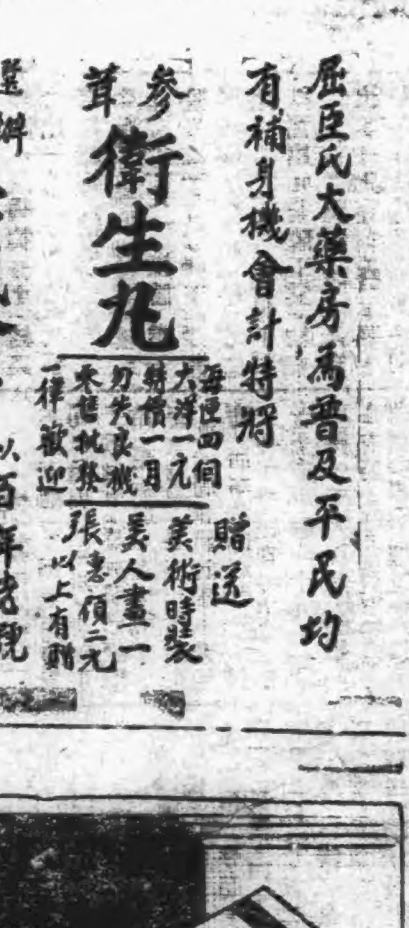 屈臣氏大藥房為普及平民均
有補身機會計特將
參茸
衛生丸
每匣四個
大洋一元
特價一月
勿失良機
零售批發
一律歡迎
贈送
美術時裝
美人畫一
張惠價二元
以上有贈
以百年老號